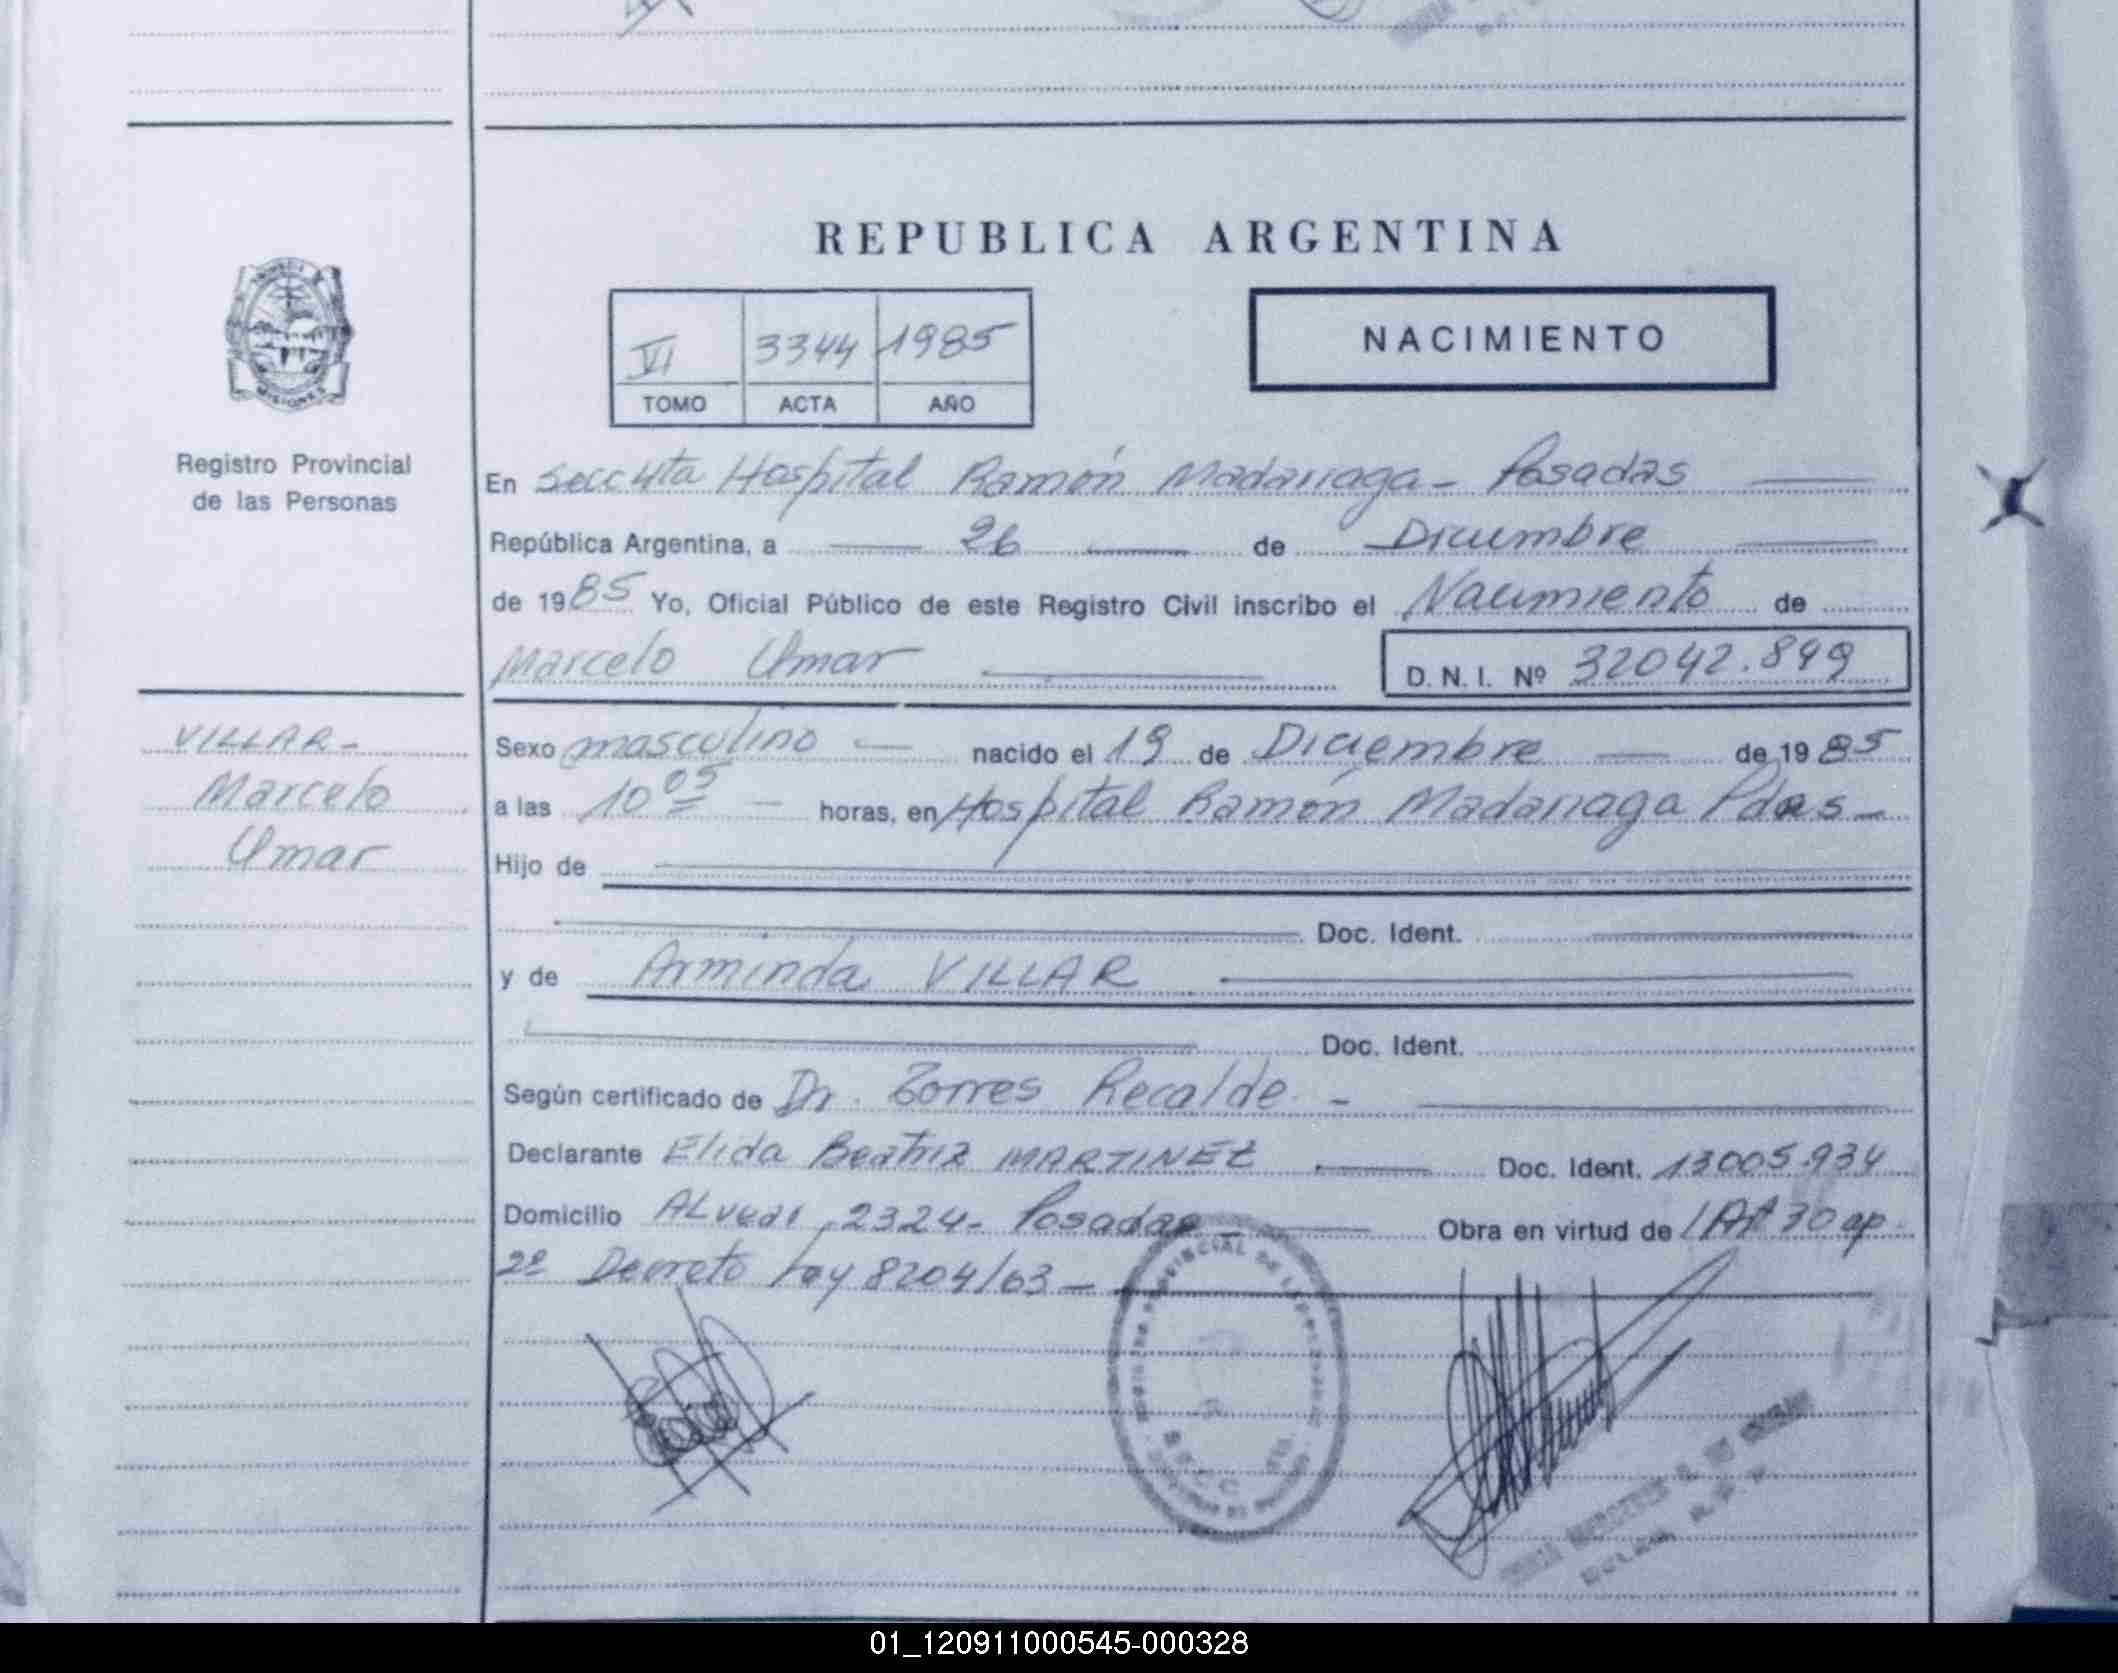 REPUBLICA ARGENTINA
VI 3344 1985
TOMO ACTA AÑO
NACIMIENTO
MISIONES
Registro Provincial
de las Personas
En Hospital Ramón Madariaga - Posadas
República Argentina, a 26 de Diciembre
de 1985 Yo, Oficial Público de este Registro Civil inscribo el Nacimiento de
Marcelo Omar D. N. I. Nº 32042.849
VILLAR -
Marcelo
Omar
Sexo masculino nacido el 19 de Diciembre de 1985
a las 10 05 horas, en Hospital Ramón Madariaga Pdas -
Hijo de
Doc. Ident.
y de Arminda VILLAR
Doc. Ident.
Según certificado de Dr. Torres Recalde -
Declarante Elida Beatriz MARTINEZ Doc. Ident. 13005.934
Domicilio ALvear 2324 - Posadas Obra en virtud de Art 30 ap
2º Decreto Ley 8204/63 -
01_120911000545-000328